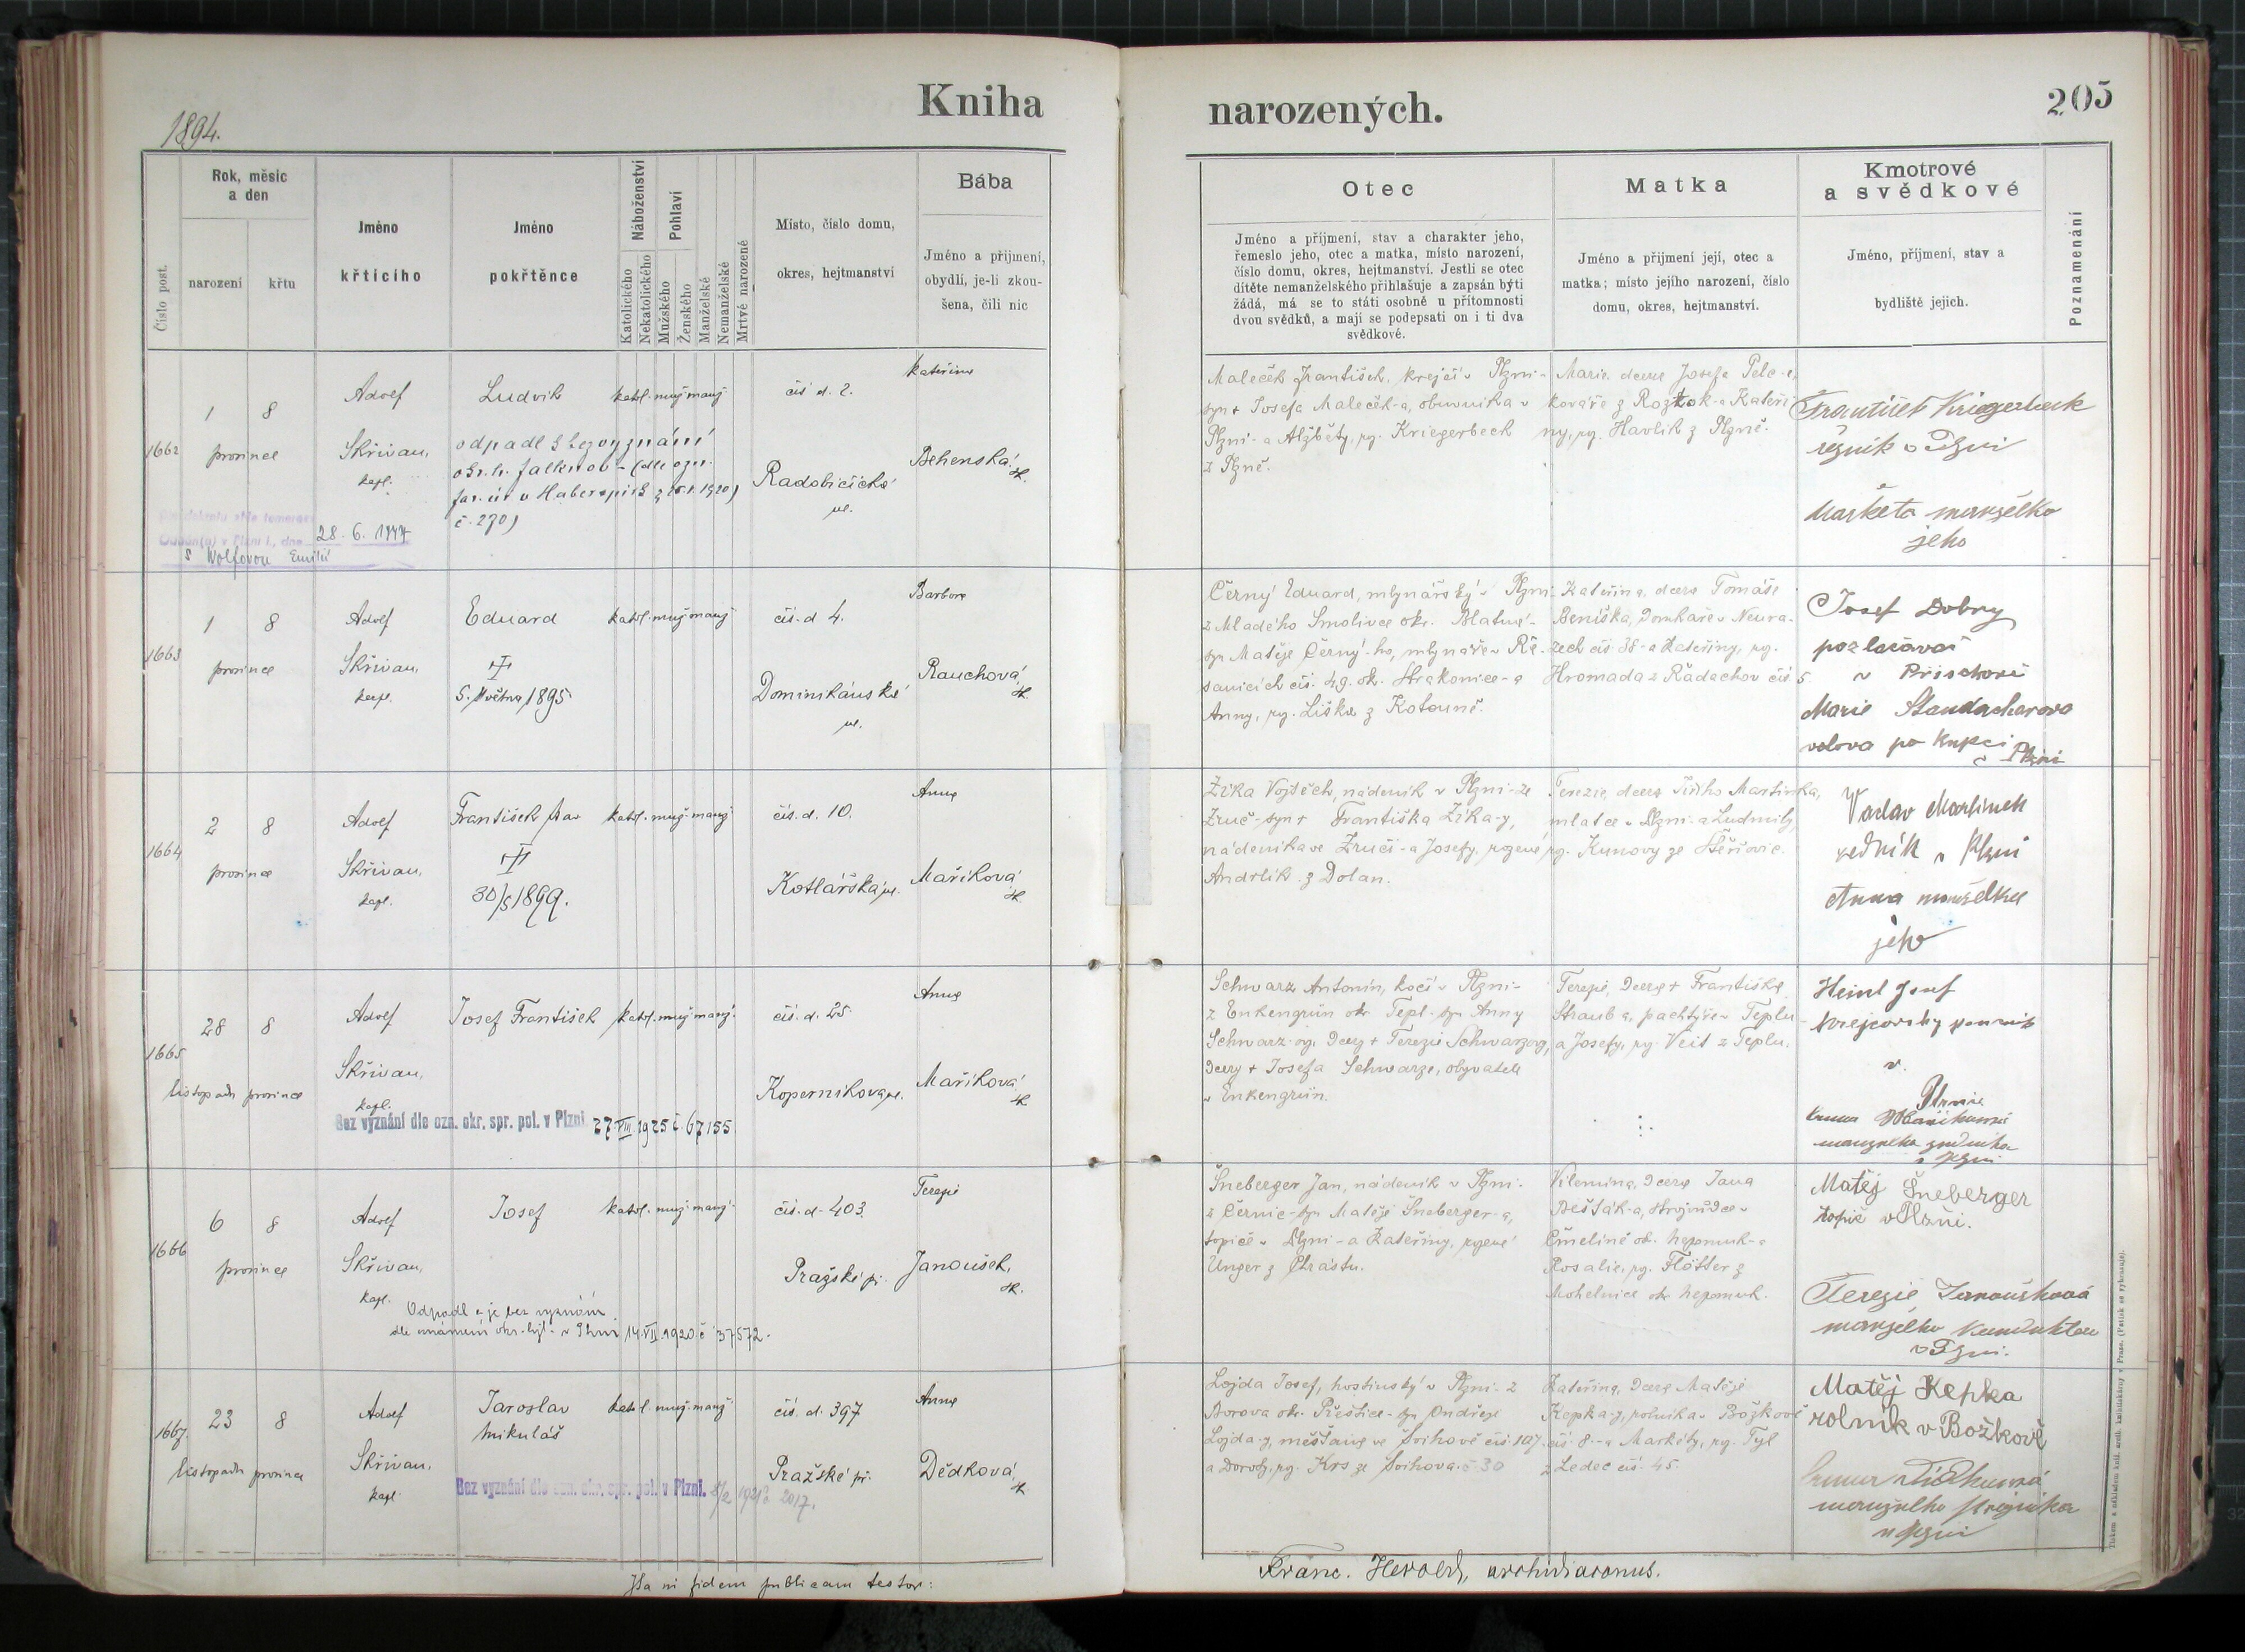 Kniha
narozených.
205
1894.
Číslo post.
Rok, měsíc
a den
narození
křtu
Jméno
křtícího
Jméno
pokřtěnce
Náboženství
Katolického
Nekatolického
Pohlaví
Mužského
Ženského
Manželské
Nemanželské
Mrtvě narozené
Místo, číslo domu,
okres, hejtmanství
Bába
Jméno a příjmení,
obydlí, je-li zkou-
šena, čili nic
Otec
Jméno a příjmení, stav a charakter jeho,
řemeslo jeho, otec a matka, místo narození,
číslo domu, okres, hejtmanství. Jestli se otec
dítěte nemanželského přihlašuje a zapsán býti
žádá, má se to státi osobně u přítomnosti
dvou svědků, a mají se podepsati on i ti dva
svědkové.
Matka
Jméno a příjmení její, otec a
matka; místo jejího narození, číslo
domu, okres, hejtmanství.
Kmotrové
a svědkové
Jméno, příjmení, stav a
bydliště jejich.
Poznamenání
1662
1 8
prosince
Adolf
Skřivan,
kapl.
Ludvík
odpadl s bezvyznání
č. 270)
28. 6.
s Wolfovou Emilií
katol. muž. manž
čís d. 2.
Radobičická
ul.
Kateřina
Behenská
zk.
Maleček František, krejčí v Plzni -
syn + Josefa Maleček-a, obuvníka v
Plzni - a Alžběty, roz. Kriegerbeck
z Plzně.
Marie, dcera Josefa Pelc-e,
kováře z Roztok - a Kateři-
ny, roz. Havlík z Plzně.
František Kriegerbeck
řezník v Plzni
Markéta manželka
jeho
1663
1 8
prosince
Adolf
Skřivan,
kapl.
Eduard
5. Května 1895
katol. muž manž
čís. d 4.
Dominikánská
ul.
Barbora
Rauchová
zk.
Černý Eduard, mlynářský v Plzni
z Mladého Smolivce okr. Blatné -
syn Matěje Černý-ho, mlynáře v Ře-
sanicích čís. 49. ok. Strakonice - a
Anny, roz. Liška z Kotouně.
Kateřina, dcera Tomáše
Beníška, domkáře v Neura-
zech čís 38 - a Kateřiny, roz.
Hromada z Řadachov čís. 5.
Josef Dobry
pozlačovač
v
Marie Standacherova
vdova po kupci
v Plzni
1664
2 8
prosince
Adolf
Skřivan,
kapl.
František
30/5 1899.
katol. muž. manž
čís. d. 10.
Kotlářská ul.
Anna
Maříková
zk.
Žíka Vojtěch, nádeník v Plzni - ze
Zruč - syn + Františka Žíka-y,
nádeníka ve Zruči - a Josefy, rozené
Andrlík z Dolan.
Terezie, dcera Jiřího Martínka,
mlatce v Plzni - a Ludmily,
roz. Kunovy ze
Vaclav Martinek
zedník v Plzni
Anna manželka
jeho
1665
28 8
listopadu prosince
Adolf
Skřivan,
kapl.
Josef František
katol. muž manž.
Bez vyznání dle ozn. okr. spr. pol. v Plzni 27. VIII. 1925 č. 67155
čís. d. 25
Koperníkova ul.
Anna
Maříková
zk
Schwarz Antonín, kočí v Plzni -
z Enkengrün okr Tepl - syn Anny
Schwarz-ové, dcery + Terezie Schwarzové,
dcery + Josefa Schwarze, obyvatele
v Enkengrün.
Terezie, dcera + Františka
Straub a, pachtýře v Teplu
a Josefy, roz. Veit z Teplu.
Heinl Josef
krejcovsky pomocnik
v
Plzni
Anna Maříková
manzelka zedníka
v Plzni
1666
6 8
prosince
Adolf
Skřivan,
kapl.
Josef
Odpadl a je bez vyznání
dle oznámení okr. hejt. v Plzni 14. VII. 1920 č 37572.
katol. muž. manž.
čís. d. 403.
Pražské př.
Terezie
Janoušek,
zk.
Šneberger Jan, nádeník v Plzni -
z Černic - syn Matěje Šneberger-a,
topiče v Plzni - a Kateřiny, rozené
Unger z Chrástu.
Vilemína, dcera Jana
Dešťák-a, strojníce v
Čmelíně ok. Nepomuk - a
Rosalie, roz. Flötter z
Mohelnice okr. Nepomuk.
Matěj Šneberger
topič v Plzni.
Terezie Janoušková
manzelka konduktera
v Plzni.
1667.
23 8
listopadu prosince
Adolf
Skřivan,
kapl
Jaroslav
Mikuláš
Bez vyznání dle ozn. okr. spr. pol. v Plzni. 8/2 1921 č 2017.
katol. muž. manž
čís. d. 397
Pražské př.
Anna
Dědková,
zk
Lojda Josef, hostinský v Plzni - z
Borova okr. Přeštice - syn Ondřeje
Lojda-y, měšťana ve Švihově čís. 107.
a Doroty, roz. Krs ze Švihova č. 30
Kateřina, dcera Matěje
Kepka-y, rolníka v Božkově
čís 8. - a Markéty, roz. Tyl
z Ledec čís. 45.
Matěj Kepka
rolník v Božkově
manzelka strojníka
v Plzni
Ita in fidem publicam testor:
Franc. Herold, archidiaconus.